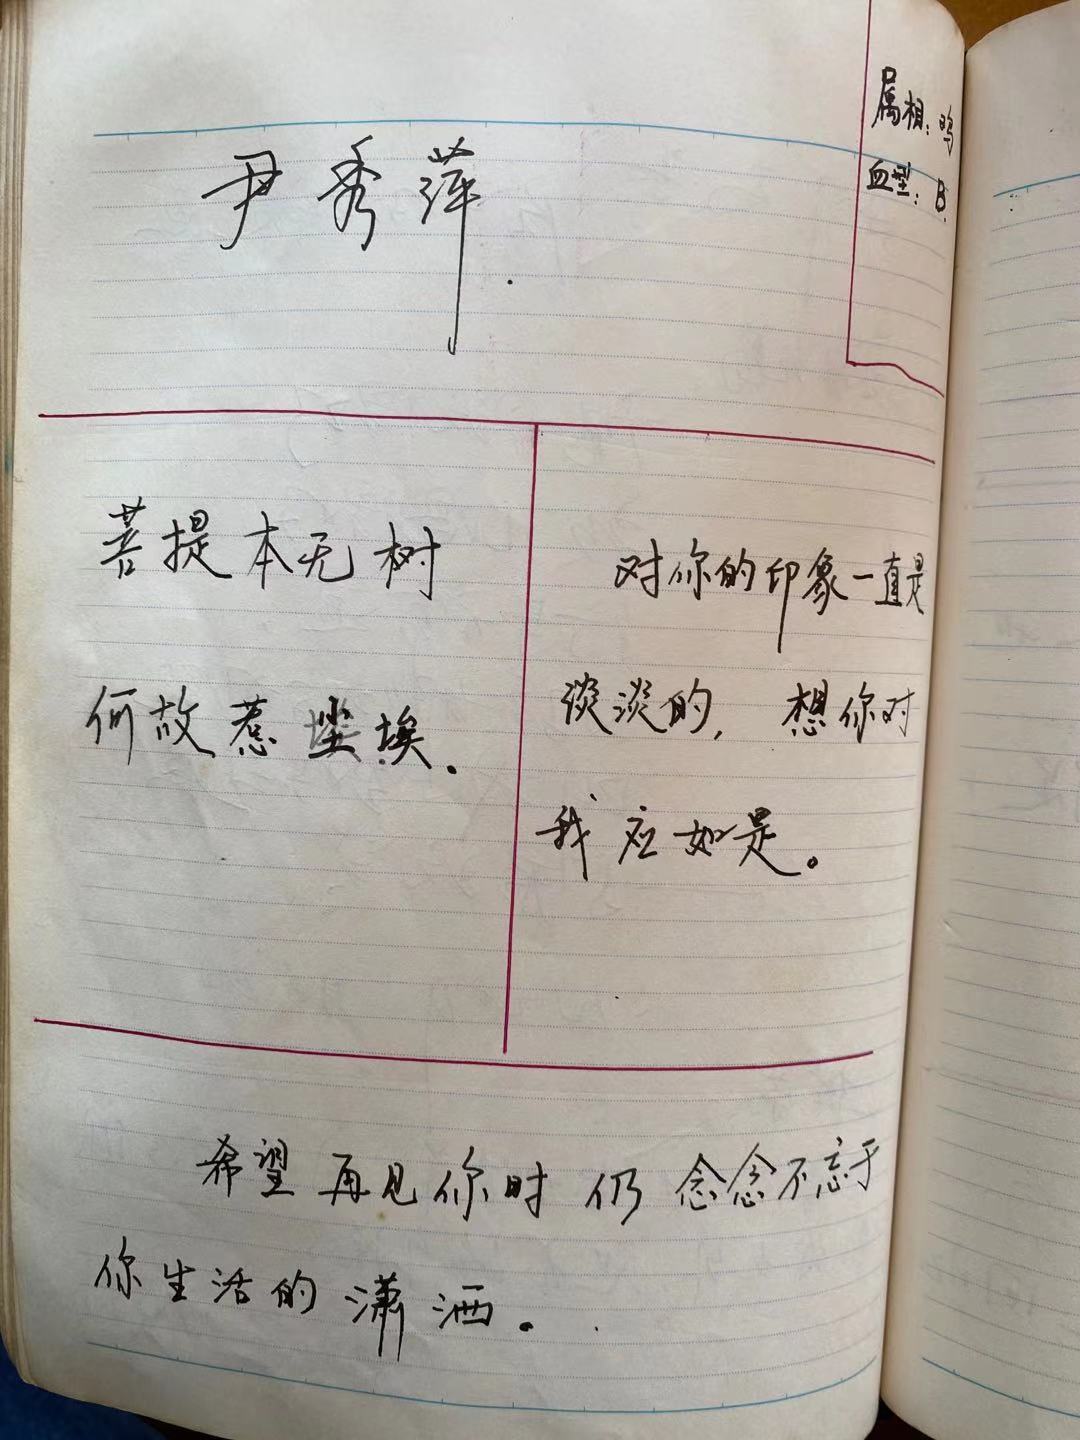 属相：鸡
血型：B.
尹秀萍.
菩提本无树
何故惹尘埃.
对你的印象一直是
淡淡的, 想你对
我应如是。
希望再见你时仍念念不忘于
你生活的潇洒。